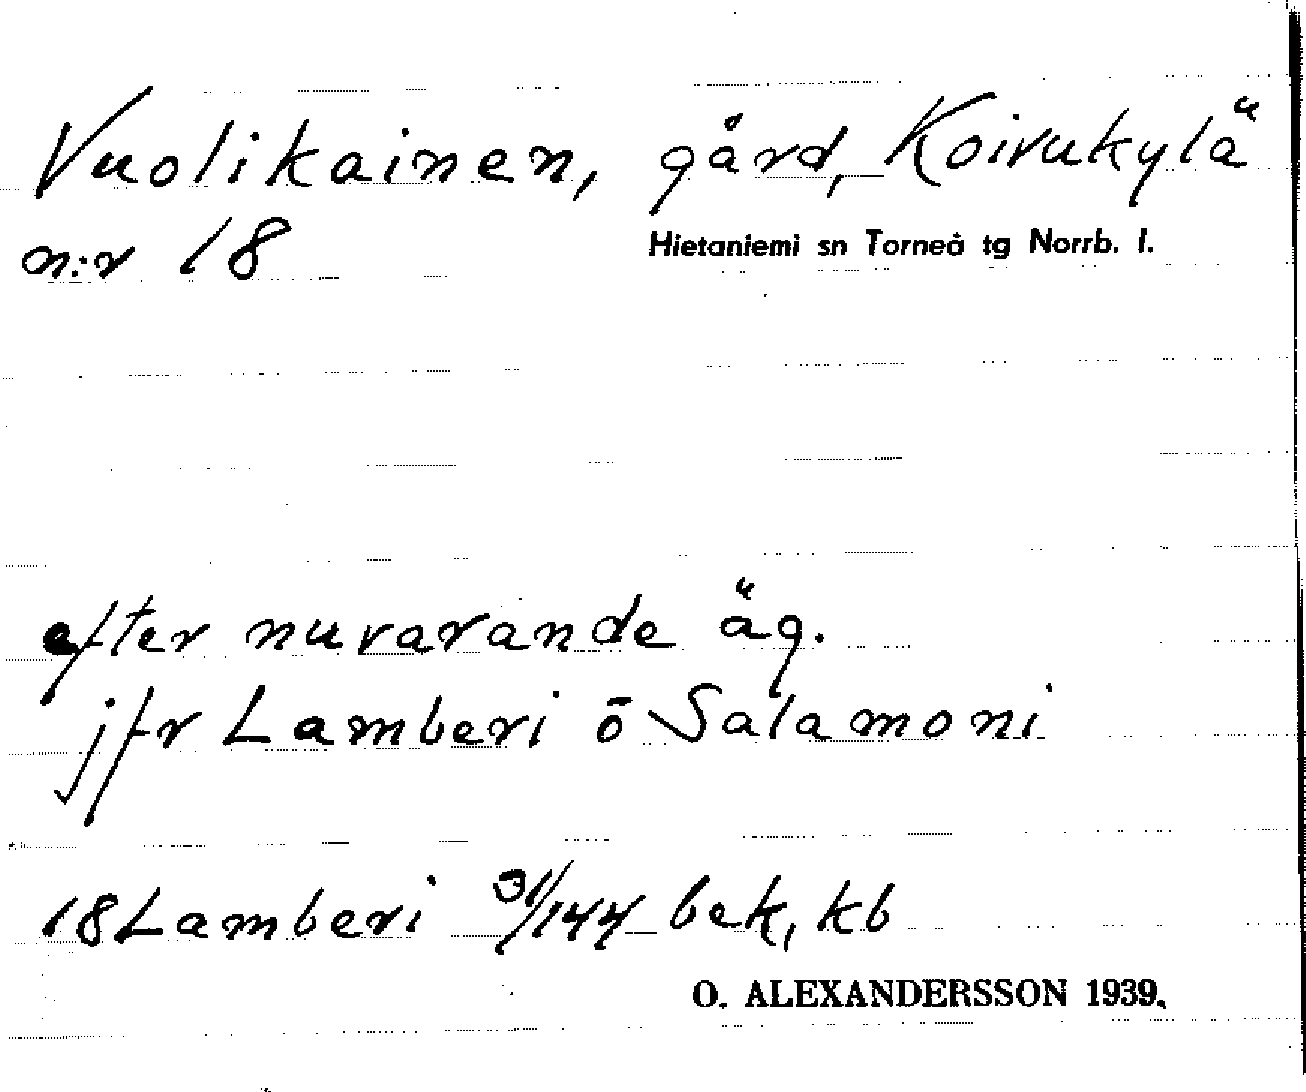 Vuolikainen, gård, Koivukylä
n:r 18
Hietaniemi sn Torneå tg Norrb. l.
efter nuvarande äg.
jfr Lamberi o Salamoni
18 Lamberi 31/144 bek, kb
O. ALEXANDERSSON 1939.